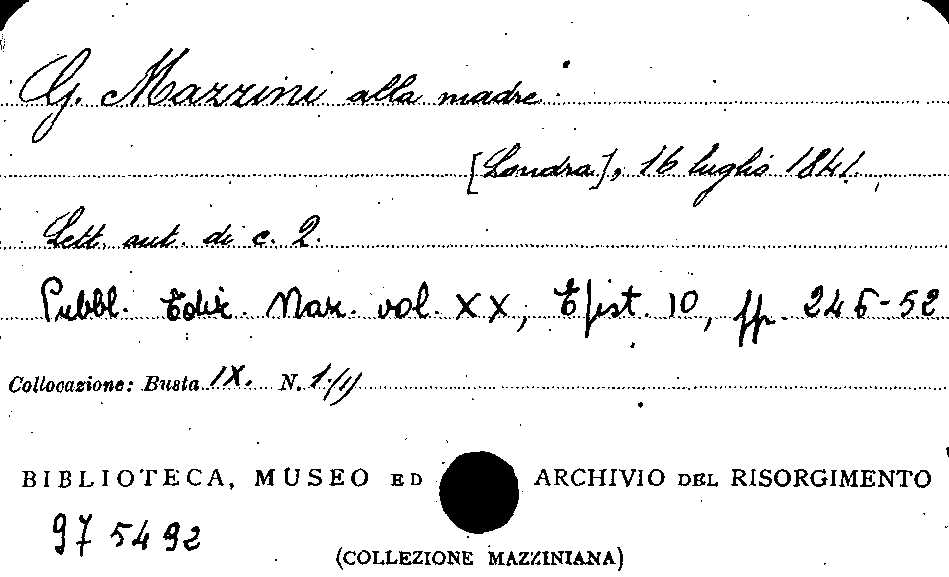 G. Mazzini alla madre
[Londra], 16 luglio 1841.
Lett. aut. di c. 2.
Pubbl. Ediz. Naz. vol. XX, Epist. 10, pp. 246-52
Collocazione: Busta IX. N.
BIBLIOTECA, MUSEO ED ARCHIVIO DEL RISORGIMENTO
975492
(COLLEZIONE MAZZINIANA)